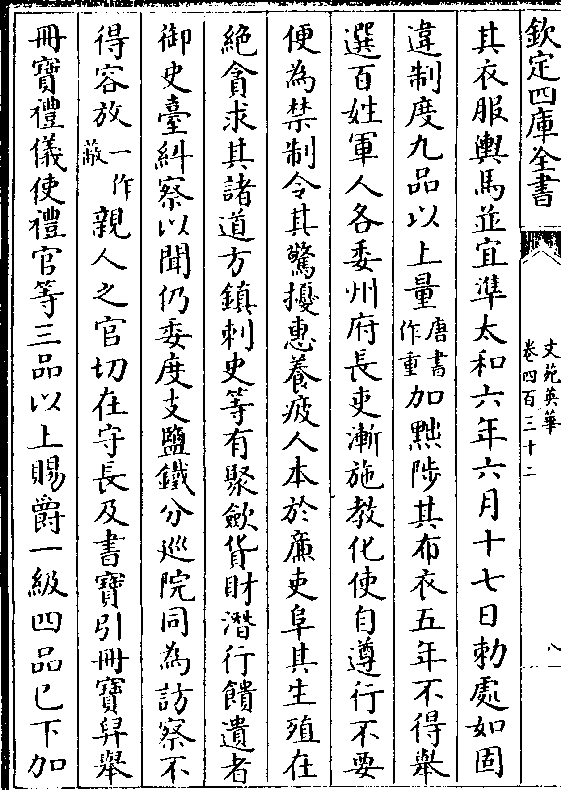 欽定四庫全書
文苑英華
卷四百三十二
八
其衣服輿馬並宜準太和六年六月十七日勅處如固
違制度九品以上量唐書作重加黜陟其布衣五年不得舉
選百姓軍人各委州府長吏漸施教化使自遵行不要
便為禁制令其驚擾惠養疲人本於廉吏阜其生殖在
絕貪求其諸道方鎮刺史等有聚斂貨財潛行饋遺者
御史臺糾察以聞仍委度支鹽鐵分巡院同為訪察不
得容放一作蔽親人之官切在守長及書寶引冊寶舁舉
冊寶禮儀使禮官等三品以上賜爵一級四品已下加